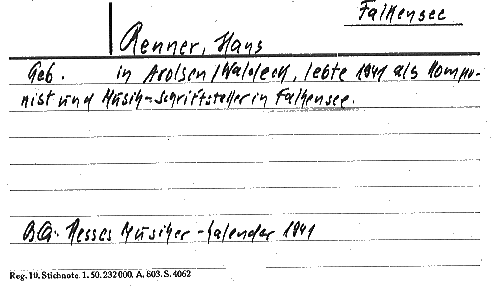 Falkensee
Renner, Hans
Geb. in Arolsen/Waldeck, lebte 1941 als Kompo-
nist und Musik-Schriftsteller in Falkensee.
BQ. Hesses Musiker-Kalender 1941
Reg. 10. Stichnote. 1. 50. 232000. A. 803. S. 4062